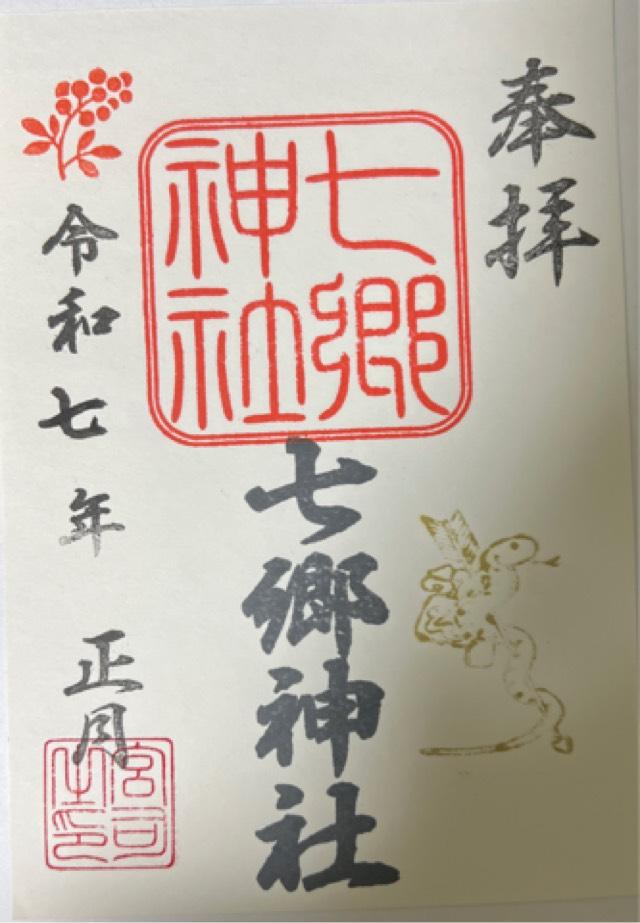 奉拝
七郷
神社
七郷神社
令和七年 正月
宮司
之印